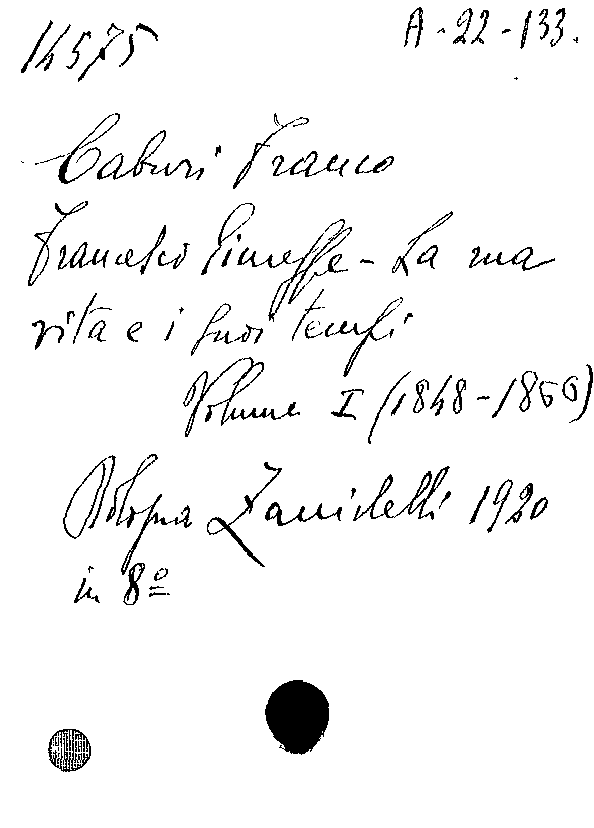 14575
A-22-133.
Caburi Franco
Francesco Giuseppe - La sua
vita e i suoi tempi
Volume I (1848-1866)
Bologna Zanichelli 1920
in 8º